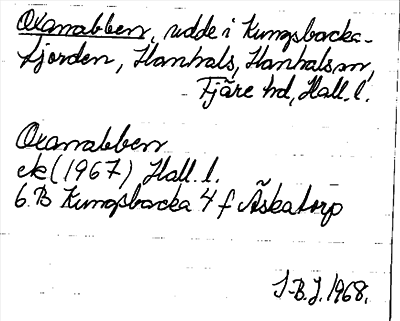 Oxanabben, udde i Kungsbacka-
fjorden, Hanhals, Hanhals sn,
Fjäre hd, Hall. l.
Oxanabben
ek (1967) Hall. l.
6 B Kungsbacka 4 f Äskatorp
S-B.J. 1968.